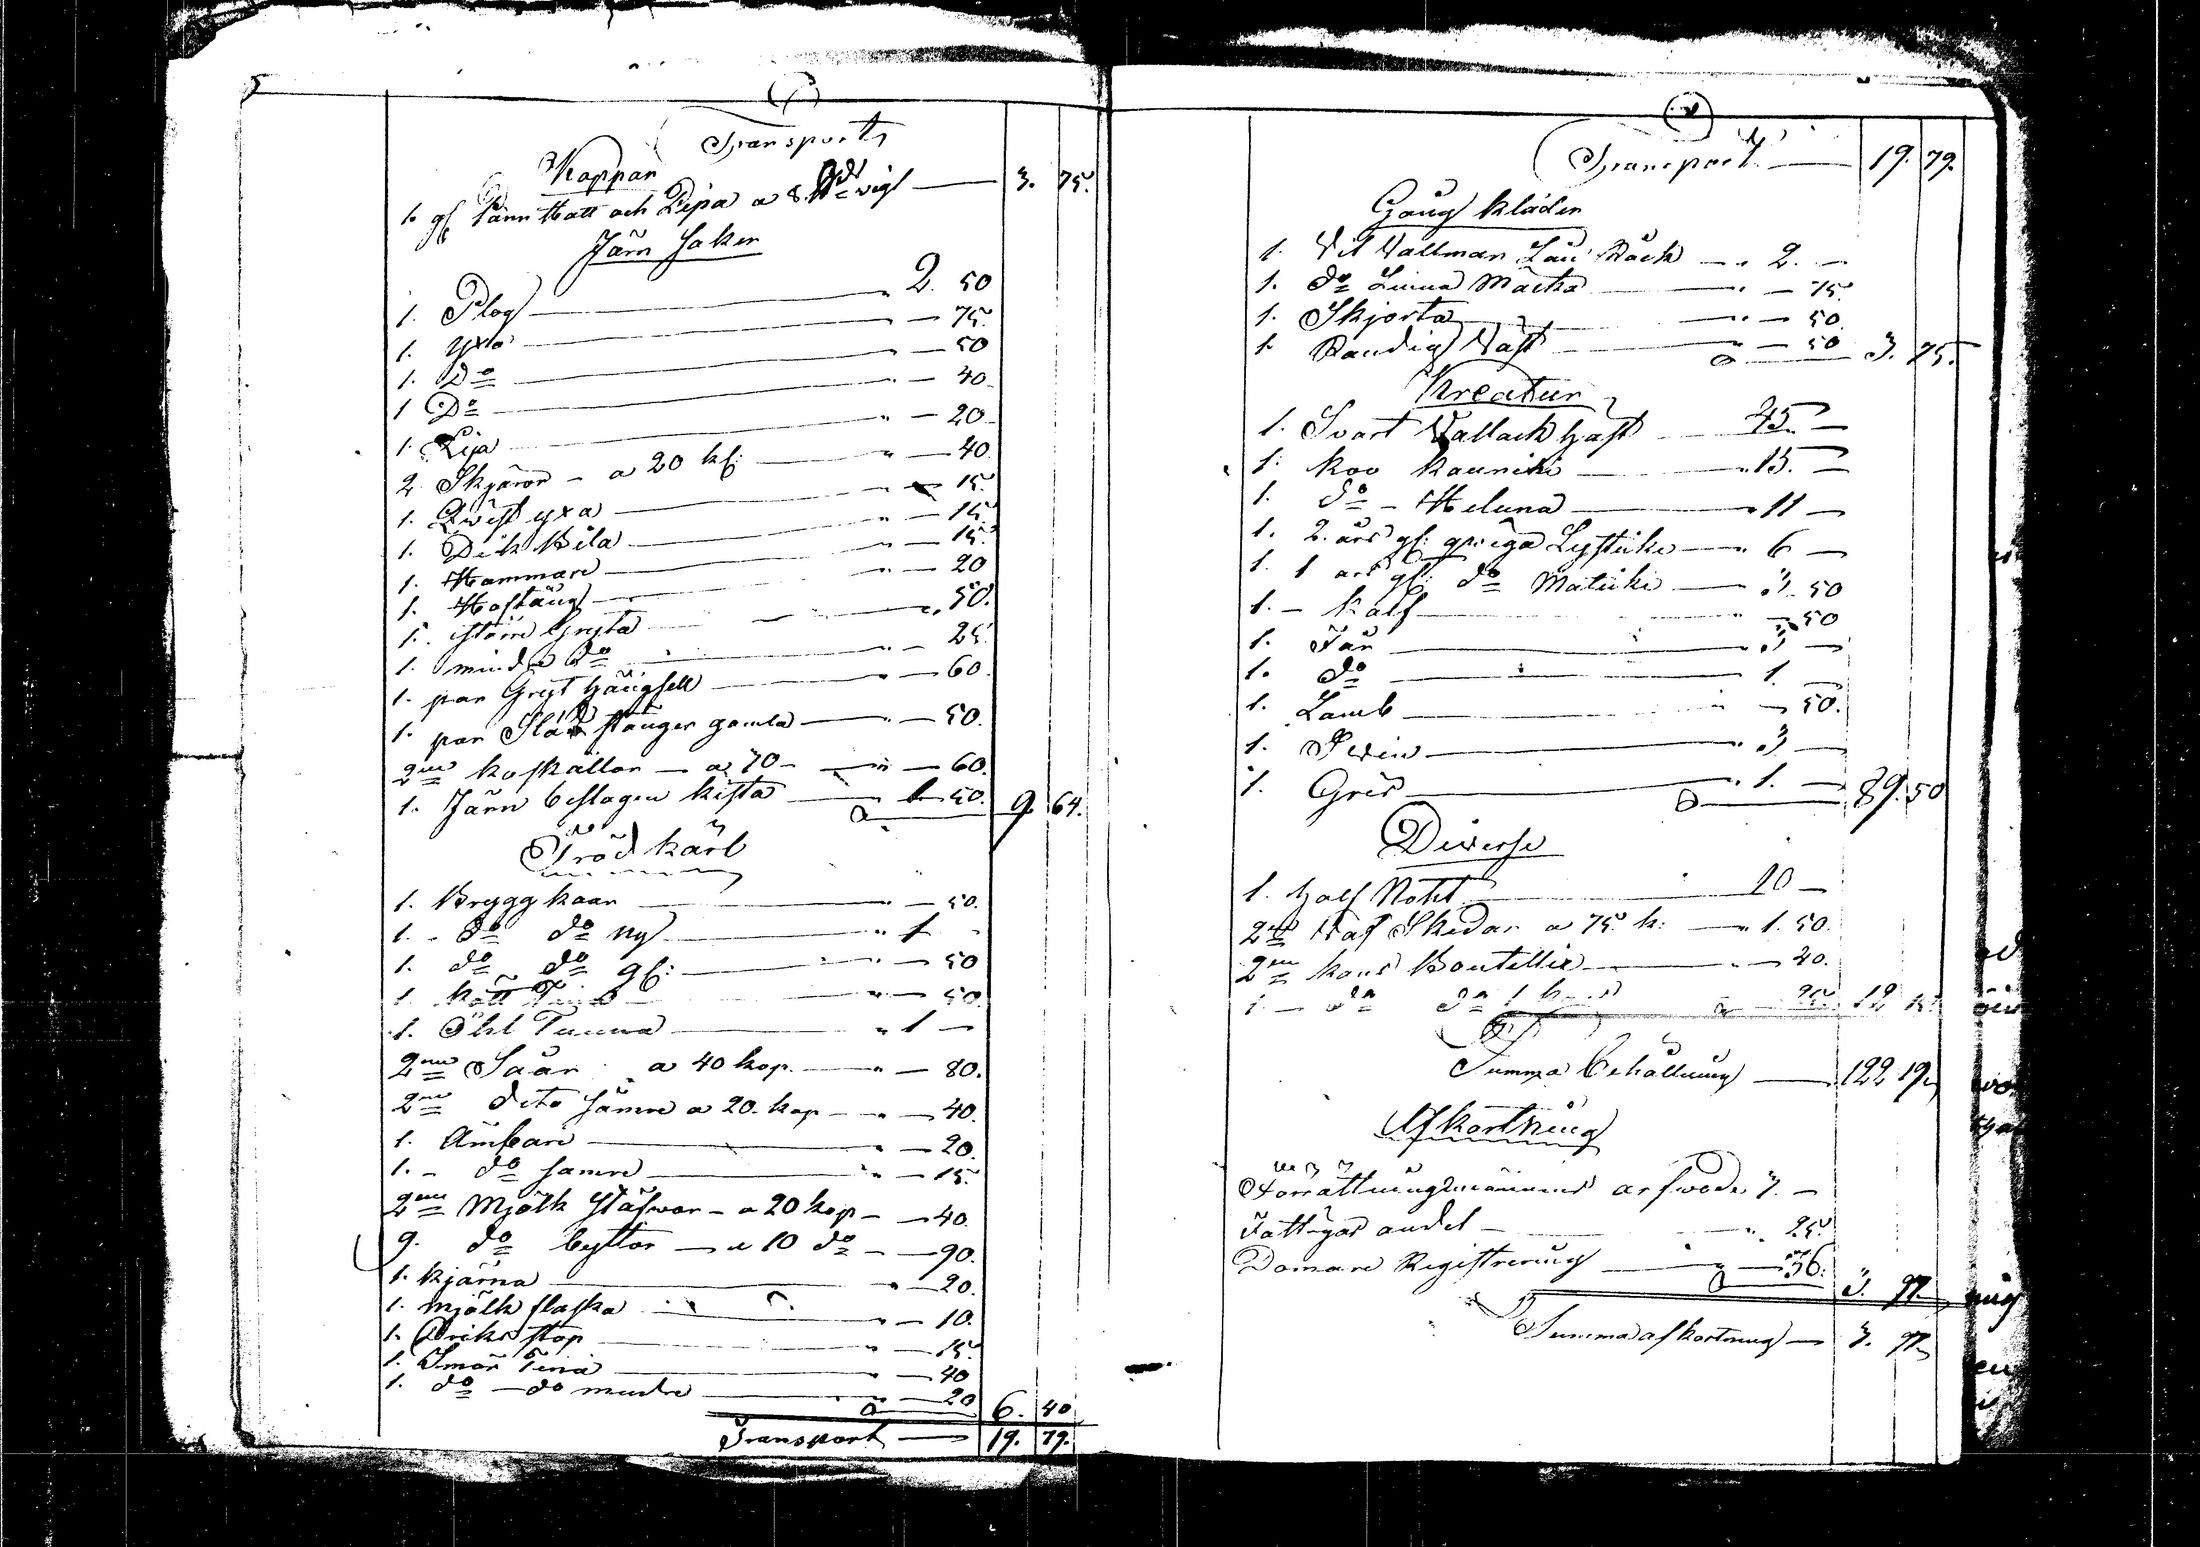 Transport
Koppar
1. gl. Pann Hatt och Pipa a 8 vigt — 3. 75.
Järn Saker
1. Plog — 2. 50
1. yxa — 75.
1. Do — 50
1 Do — 40
1. Lija — 20
2 Skjäror — a 20 kl: — 40
1. Qwist yxa — 15.
1. Dick Bila — 15.
1. Hammare — 15.
1. Hoftång — 20
1. större Gryta — 50.
1. mindre do — 25.
1. par Gryt hängsell — 60
1. par Släd stänger gamla — 50.
2ne koskällor — a — 60.
1. Järn beslagen kista — 50. 9. 64.
Träd kärl
1. Brygg kaar — 50.
1. - do do ny — 1 -
1. do do gl: — 50
1. kött — 50
1. Öhl Tunna — 1 —
2ne Såar a 40 kop. — 80.
2ne dito sämre a 20. kop — 40.
1. Ämbare — 20.
1. - do samre — 15.
2ne Mjölk Stäfwor - a 20 kop — 40.
9. do byttor — a 10 do — 90.
1. kjärna — 20.
1. mjölk flaska — 10.
1. Driks stop — 15.
1. Smör Tina — 40
1. do — do mindre — 20 6. 40
Transport — 19. 79.
Transport — 19. 79.
Gång kläder
1. Vit Vallman Lån Råck — 2. —
1. do Linna Mäcko — 75.
1. Skjorta — 50.
1. Randig Väst — 50 3. 75.
Kreatur
1. Svart Vallack häst — 45. —
1. koo kauniki — 15. —
1. do - Heluna — 11 —
1. 2. års gl: qwiga Lystiki — 6 —
1. 1 ars gl: do Matiiki — 3. 50
1. - kalf — 50
1. Får — 3 —
1. do — 1. —
1. Lamb — 50.
1. Swin — 3 —
1. Gris — 1. — 89. 50
Diverse
1. half Noht — 10 —
2ne Waf Skedar a 75. k: — 1. 50.
2ne kans Bouteller — 40.
1 — do do 1 — 25. 12 15.
Summa Behållning — 122 19
Afkortning
Förrättningsmännens arfwode 3. —
Fattigas andel — 25.
Domare Registrering — 36.
3. 97.
Summa afkortning — 3. 97